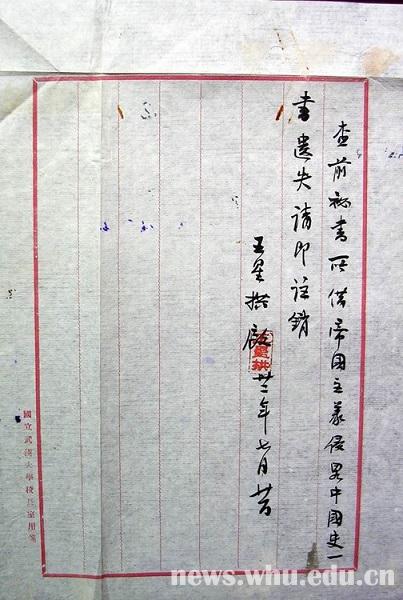 查前秘書所借帝國主義侵畧中國史一
書遺失請即註銷
王星拱啟 年七月
星拱
國立武漢大學校長室用箋
news.whu.edu.cn